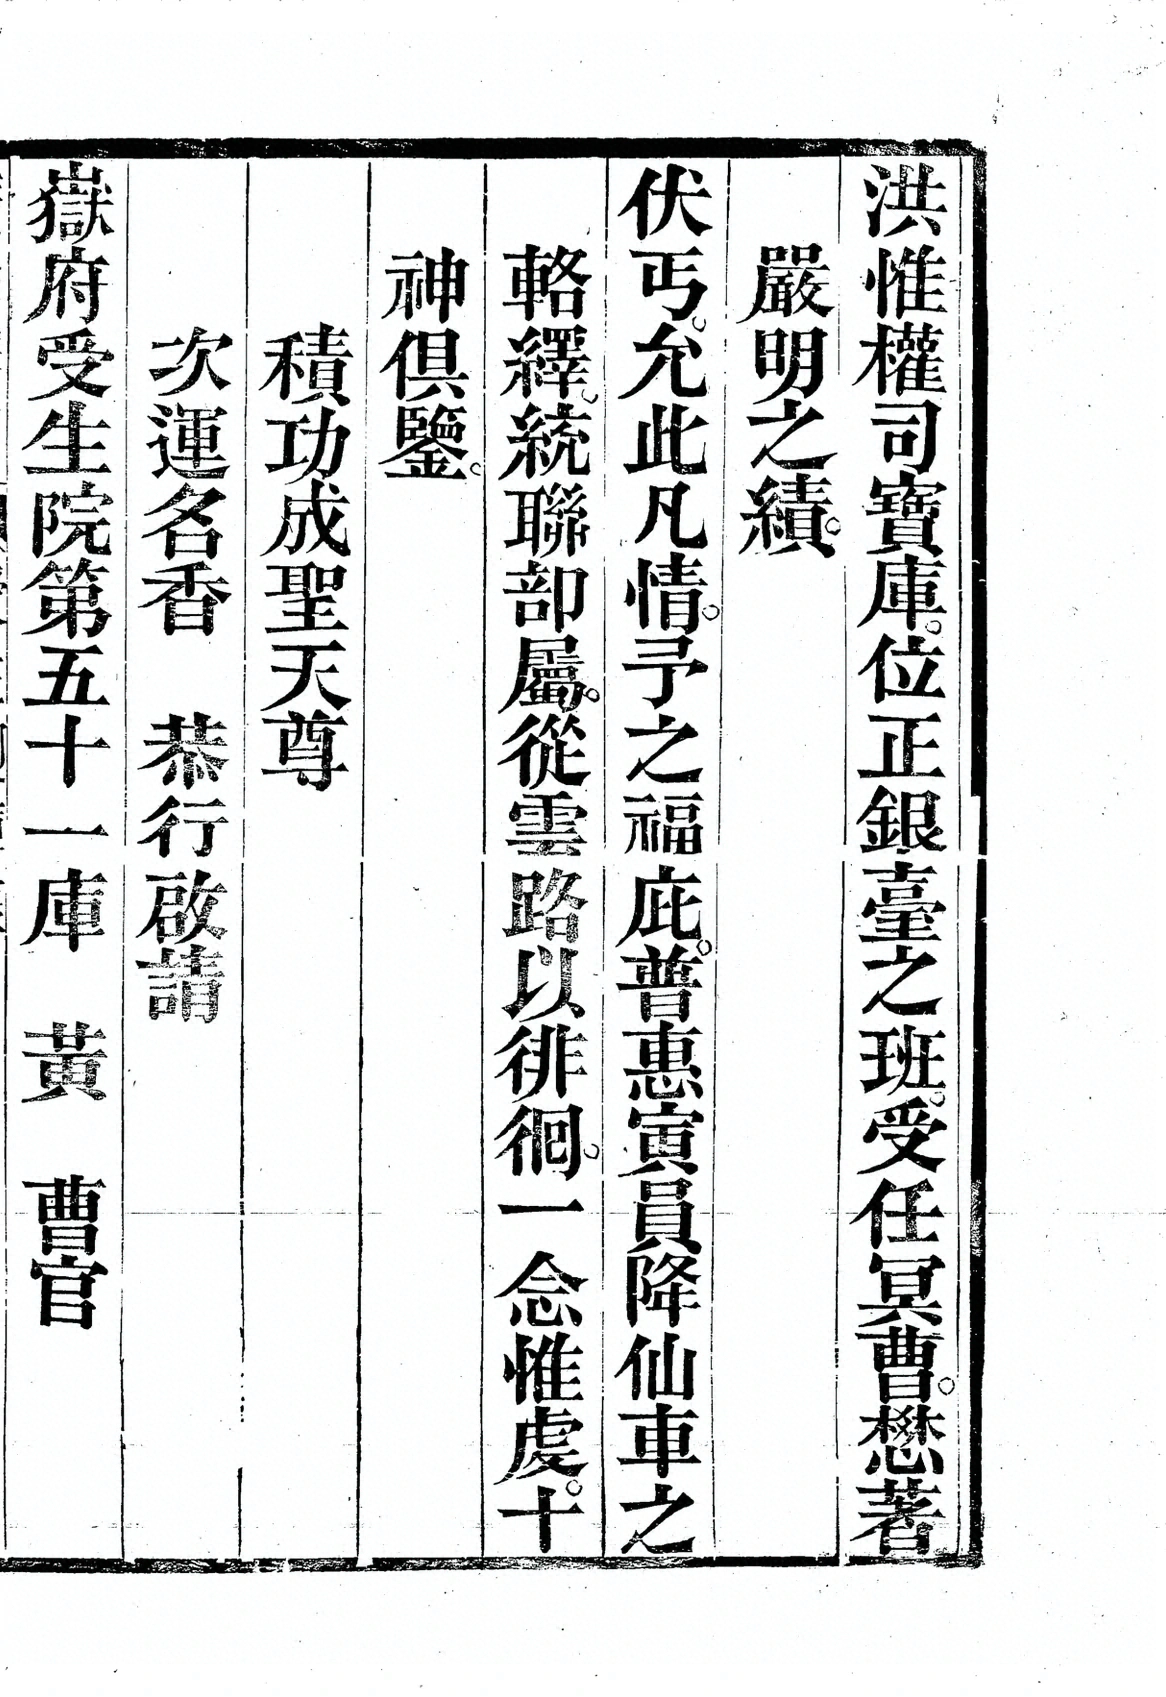 洪惟權司寶庫。位正銀臺之班。受任冥曹。懋著
嚴明之績。
伏丐。允此凡情。予之福庇。普惠寅員降仙車之
輅繹。統聯部屬。從雲路以徘徊。一念惟虔。十
神俱鑒。
積功成聖天尊
次運名香　恭行啟請
嶽府受生院第五十一庫　黃　曹官